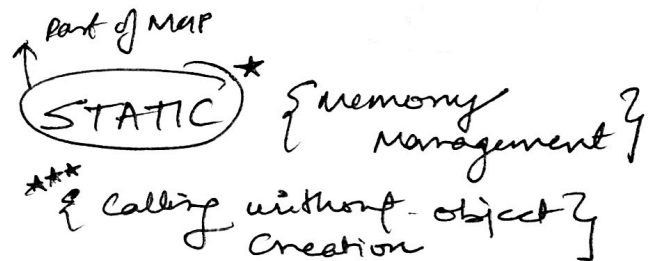 Part of MAP
STATIC ★ { Memory
Management }
★★★ { Calling without object }
Creation